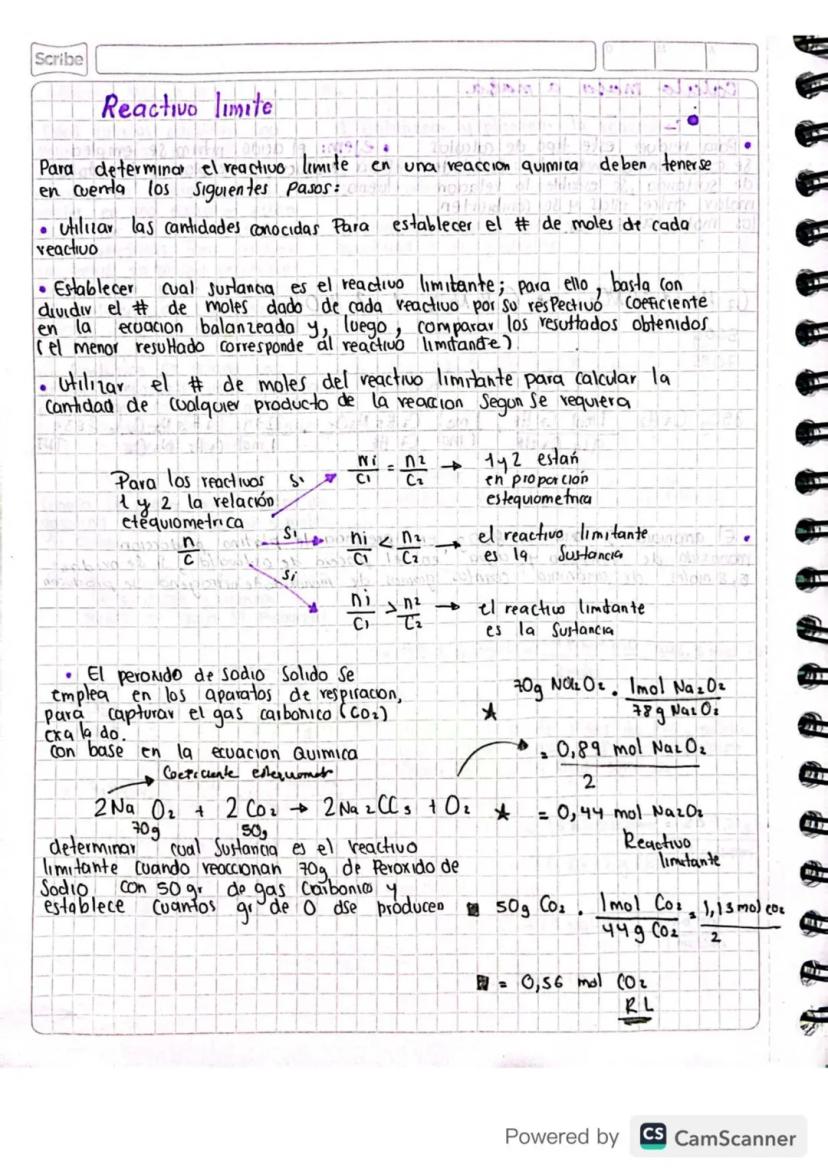 Scribe
Reactivo limite
Para determinar el reactivo limite en una reaccion quimica deben tenerse
en cuenta los siguientes pasos:
• Utilizar las cantidades conocidas Para establecer el # de moles de cada
reactivo
• Establecer cual sustancia es el reactivo limitante; para ello, basta con
dividir el # de moles dado de cada reactivo por su resPectivo coeficiente
en la ecuacion balanzeada y, luego, comparar los resultados obtenidos
(el menor resultado corresponde al reactivo limitante)
• Utilizar el # de moles del reactivo limitante para calcular la
cantidad de cualquier producto de la reaccion segun se requiera
Para los reactivos
1 y 2 la relación
etequiometrica
n/c
Si n1/C1 = n2/C2 → 1 y 2 están
en proporción
estequiometrica
Si n1/C1 < n2/C2 → el reactivo limitante
es la Sustancia
Si n1/C1 > n2/C2 → el reactivo limitante
es la Sustancia
• El peroxido de sodio Solido Se
emplea en los aparatos de respiracion,
para capturar el gas carbonico (CO2)
exalado.
con base en la ecuacion Quimica
Coeficiente estequiomet
2Na O2 + 2 CO2 → 2Na2CC3 + O2
70g 50g
determinar cual Sustancia es el reactivo
limitante cuando reaccionan 70g de Peroxido de
Sodio con 50 gr de gas Carbonico y
establece cuantos gr de O dse producen
★ 70g Na2O2 . 1mol Na2O2 / 78g Na2O2
= 0,89 mol Na2O2 / 2
★ = 0,44 mol Na2O2
Reactivo
limitante
50g CO2 . 1mol CO2 / 44g CO2 = 1,13 mol CO2 / 2
= 0,56 mol CO2
RL
Powered by CS CamScanner